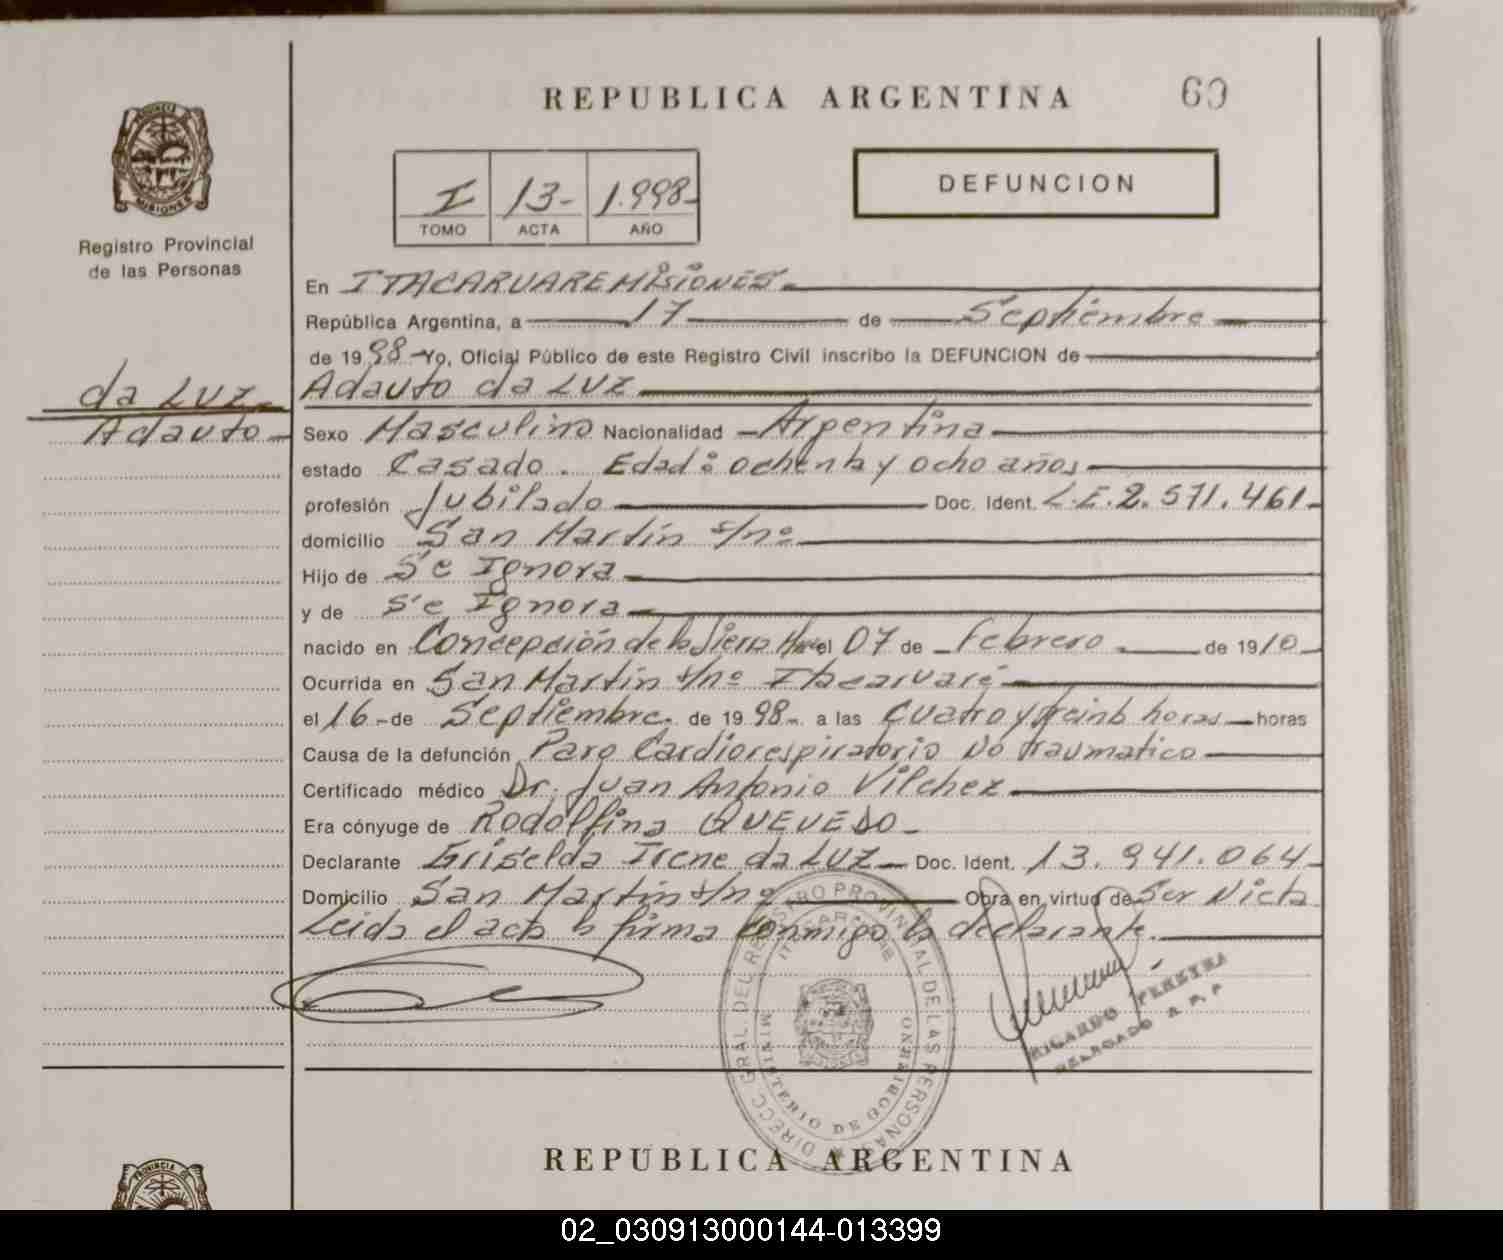 REPUBLICA ARGENTINA
60
PROVINCIA
MISIONES
Registro Provincial
de las Personas
I 13- 1.998-
TOMO ACTA AÑO
DEFUNCION
En ITACARUARE MISIONES.-
República Argentina, a 17 de Septiembre
de 1998.-Yo, Oficial Público de este Registro Civil inscribo la DEFUNCION de
da LUZ.
Adauto
Adauto da LUZ
Sexo Masculino Nacionalidad Argentina
estado Casado. Edad: ochenta y ocho años
profesión Jubilado Doc. Ident. L.E.2.571.461-
domicilio San Martín s/nº
Hijo de Se Ignora
y de Se Ignora
nacido en Concepción de la Sierra el 07 de Febrero de 1910
Ocurrida en San Martin s/nº Itacaruaré
el 16 de Septiembre. de 1998.- a las Cuatro y treinta horas horas
Causa de la defunción Paro Cardiorespiratorio No traumatico
Certificado médico Dr. Juan Antonio Vilchez
Era cónyuge de Rodolfina QUEVEDO-
Declarante Griselda Irene da LUZ Doc. Ident. 13.941.064
Domicilio San Martín s/nº Obra en virtud de Ser Nieta
Leida el acta la firma conmigo la declarante.
DIRECC. GRAL. DEL REGISTRO PROVINCIAL DE LAS PERSONAS
MINISTERIO DE GOBIERNO
RICARDO PEREYRA
DELEGADO
REPUBLICA ARGENTINA
PROVINCIA
02_030913000144-013399